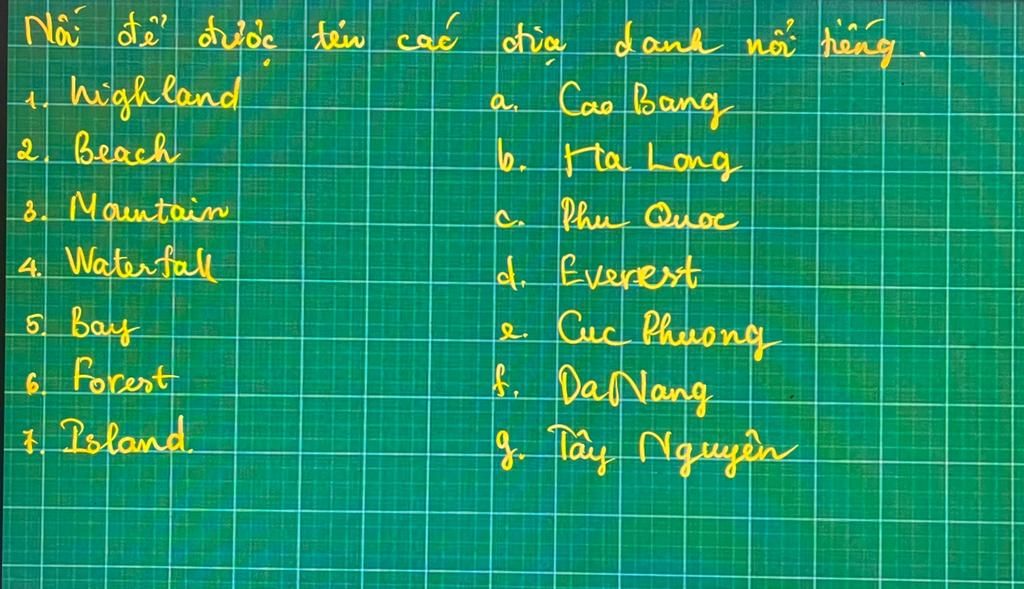 Nối để được tên các địa danh nổi tiếng.
1. highland a. Cao Bang
2. Beach b. Ha Long
3. Mountain c. Phu Quoc
4. Waterfall d. Everest
5. Bay e. Cuc Phuong
6. Forest f. Da Nang
7. Island. g. Tây Nguyên